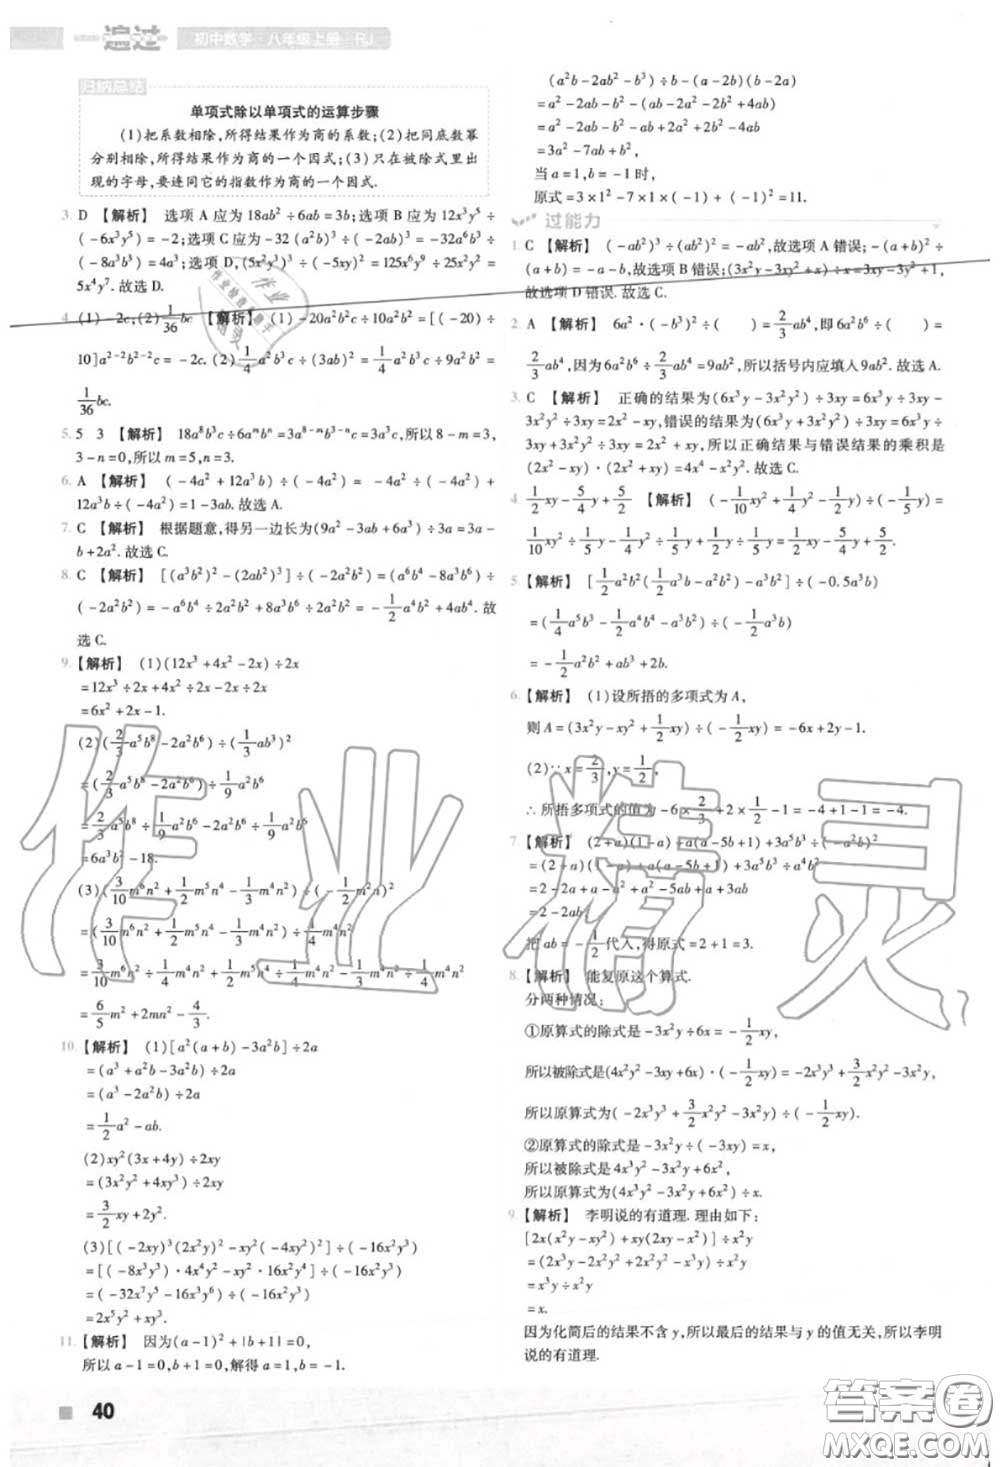 一遍过
初中数学·八年级上册·RJ
归纳总结
单项式除以单项式的运算步骤
(1)把系数相除,所得结果作为商的系数;(2)把同底数幂
分别相除,所得结果作为商的一个因式;(3)只在被除式里出
现的字母,要连同它的指数作为商的一个因式.
3. D 【解析】 选项 A 应为 18ab²÷6ab=3b;选项 B 应为 12x³y⁵÷
(-6x³y⁵)=-2;选项 C 应为-32(a²b)³÷(-2ab)³=-32a⁶b³÷
(-8a³b³)=4a³;选项 D,(5x²y³)³÷(-5xy)²=125x⁶y⁹÷25x²y²=
5x⁴y⁷.故选 D.
4. (1)-2c;(2)1/36 bc 【解析】 (1)-20a²b²c÷10a²b²=[(-20)÷
10]a²⁻²b²⁻²c=-2c.(2)1/4 a²b³c÷(3ab)²=1/4 a²b³c÷9a²b²=
1/36 bc.
5. 5 3 【解析】 18a⁸b³c÷6aᵐbⁿ=3a⁸⁻ᵐb³⁻ⁿc=3a³c,所以 8-m=3,
3-n=0,所以 m=5,n=3.
6. A 【解析】 (-4a²+12a³b)÷(-4a²)=-4a²÷(-4a²)+
12a³b÷(-4a²)=1-3ab.故选 A.
7. C 【解析】 根据题意,得另一边长为(9a²-3ab+6a³)÷3a=3a-
b+2a².故选 C.
8. C 【解析】 [(a³b²)²-(2ab²)³]÷(-2a²b²)=(a⁶b⁴-8a³b⁶)÷
(-2a²b²)=-a⁶b⁴÷2a²b²+8a³b⁶÷2a²b²=-1/2 a⁴b²+4ab⁴.故
选 C.
9. 【解析】 (1)(12x³+4x²-2x)÷2x
=12x³÷2x+4x²÷2x-2x÷2x
=6x²+2x-1.
(2)(2/3 a⁵b⁸-2a²b⁶)÷(1/3 ab³)²
=(2/3 a⁵b⁸-2a²b⁶)÷1/9 a²b⁶
=2/3 a⁵b⁸÷1/9 a²b⁶-2a²b⁶÷1/9 a²b⁶
=6a³b²-18.
(3)(3/10 m⁶n²+1/2 m⁵n⁴-1/3 m⁴n²)÷(-1/2 m²n)²
=(3/10 m⁶n²+1/2 m⁵n⁴-1/3 m⁴n²)÷1/4 m⁴n²
=3/10 m⁶n²÷1/4 m⁴n²+1/2 m⁵n⁴÷1/4 m⁴n²-1/3 m⁴n²÷1/4 m⁴n²
=6/5 m²+2mn²-4/3.
10. 【解析】 (1)[a²(a+b)-3a²b]÷2a
=(a³+a²b-3a²b)÷2a
=(a³-2a²b)÷2a
=1/2 a²-ab.
(2)xy²(3x+4y)÷2xy
=(3x²y²+4xy³)÷2xy
=3/2 xy+2y².
(3)[(-2xy)³(2x²y)²-xy²(-4xy²)²]÷(-16x²y³)
=[(-8x³y³)·4x⁴y²-xy²·16x²y⁴]÷(-16x²y³)
=(-32x⁷y⁵-16x³y⁶)÷(-16x²y³)
=2x⁵y²+xy³.
11. 【解析】 因为(a-1)²+|b+1|=0,
所以 a-1=0,b+1=0,解得 a=1,b=-1.
(a²b-2ab²-b³)÷b-(a-2b)(b-2a)
=a²-2ab-b²-(ab-2a²-2b²+4ab)
=a²-2ab-b²-ab+2a²+2b²-4ab
=3a²-7ab+b²,
当 a=1,b=-1时,
原式=3×1²-7×1×(-1)+(-1)²=11.
过能力
1. C 【解析】 (-ab²)³÷(ab²)²=-ab²,故选项 A 错误;-(a+b)²÷
(a+b)=-a-b,故选项 B 错误;(3x²y-3xy²+x)÷x=3xy-3y²+1,
故选项 D 错误.故选 C.
2. A 【解析】 6a²·(-b³)²÷( )=2/3 ab⁴,即 6a²b⁶÷( )=
2/3 ab⁴,因为 6a²b⁶÷2/3 ab⁴=9ab²,所以括号内应填入 9ab².故选 A.
3. C 【解析】 正确的结果为(6x³y-3x²y²)÷3xy=6x³y÷3xy-
3x²y²÷3xy=2x²-xy,错误的结果为(6x³y+3x²y²)÷3xy=6x³y÷
3xy+3x²y²÷3xy=2x²+xy,所以正确结果与错误结果的乘积是
(2x²-xy)·(2x²+xy)=4x⁴-x²y².故选 C.
4. 1/2 xy-5/4 y+5/2 【解析】 (1/10 xy²-1/4 y²+1/2 y)÷(1/5 y)=
1/10 xy²÷1/5 y-1/4 y²÷1/5 y+1/2 y÷1/5 y=1/2 xy-5/4 y+5/2.
5. 【解析】 [1/2 a²b²(1/2 a³b-a²b²)-a³b²]÷(-0.5a³b)
=(1/4 a⁵b³-1/2 a⁴b⁴-a³b²)÷(-1/2 a³b)
=-1/2 a²b²+ab³+2b.
6. 【解析】 (1)设所捂的多项式为 A,
则 A=(3x²y-xy²+1/2 xy)÷(-1/2 xy)=-6x+2y-1.
(2)∵x=2/3,y=1/2,
∴所捂多项式的值为-6×2/3+2×1/2-1=-4+1-1=-4.
7. 【解析】 (2+a)(1-a)+a(a-5b+1)+3a⁵b³÷(-a²b)²
=(2+a)(1-a)+a(a-5b+1)+3a⁵b³÷a⁴b²
=2-2a+a-a²+a²-5ab+a+3ab
=2-2ab.
把 ab=-1/2 代入,得原式=2+1=3.
8. 【解析】 能复原这个算式.
分两种情况:
①原算式的除式是-3x²y÷6x=-1/2 xy,
所以被除式是(4x²y²-3xy+6x)·(-1/2 xy)=-2x³y³+3/2 x²y²-3x²y,
所以原算式为(-2x³y³+3/2 x²y²-3x²y)÷(-1/2 xy).
②原算式的除式是-3x²y÷(-3xy)=x,
所以被除式是 4x³y²-3x²y+6x²,
所以原算式为(4x³y²-3x²y+6x²)÷x.
9. 【解析】 李明说的有道理.理由如下:
[2x(x²y-xy²)+xy(2xy-x²)]÷x²y
=(2x³y-2x²y²+2x²y²-x³y)÷x²y
=x³y÷x²y
=x.
因为化简后的结果不含 y,所以最后的结果与 y 的值无关,所以李明
说的有道理.
40
作业精灵
答案圈
MXQE.COM